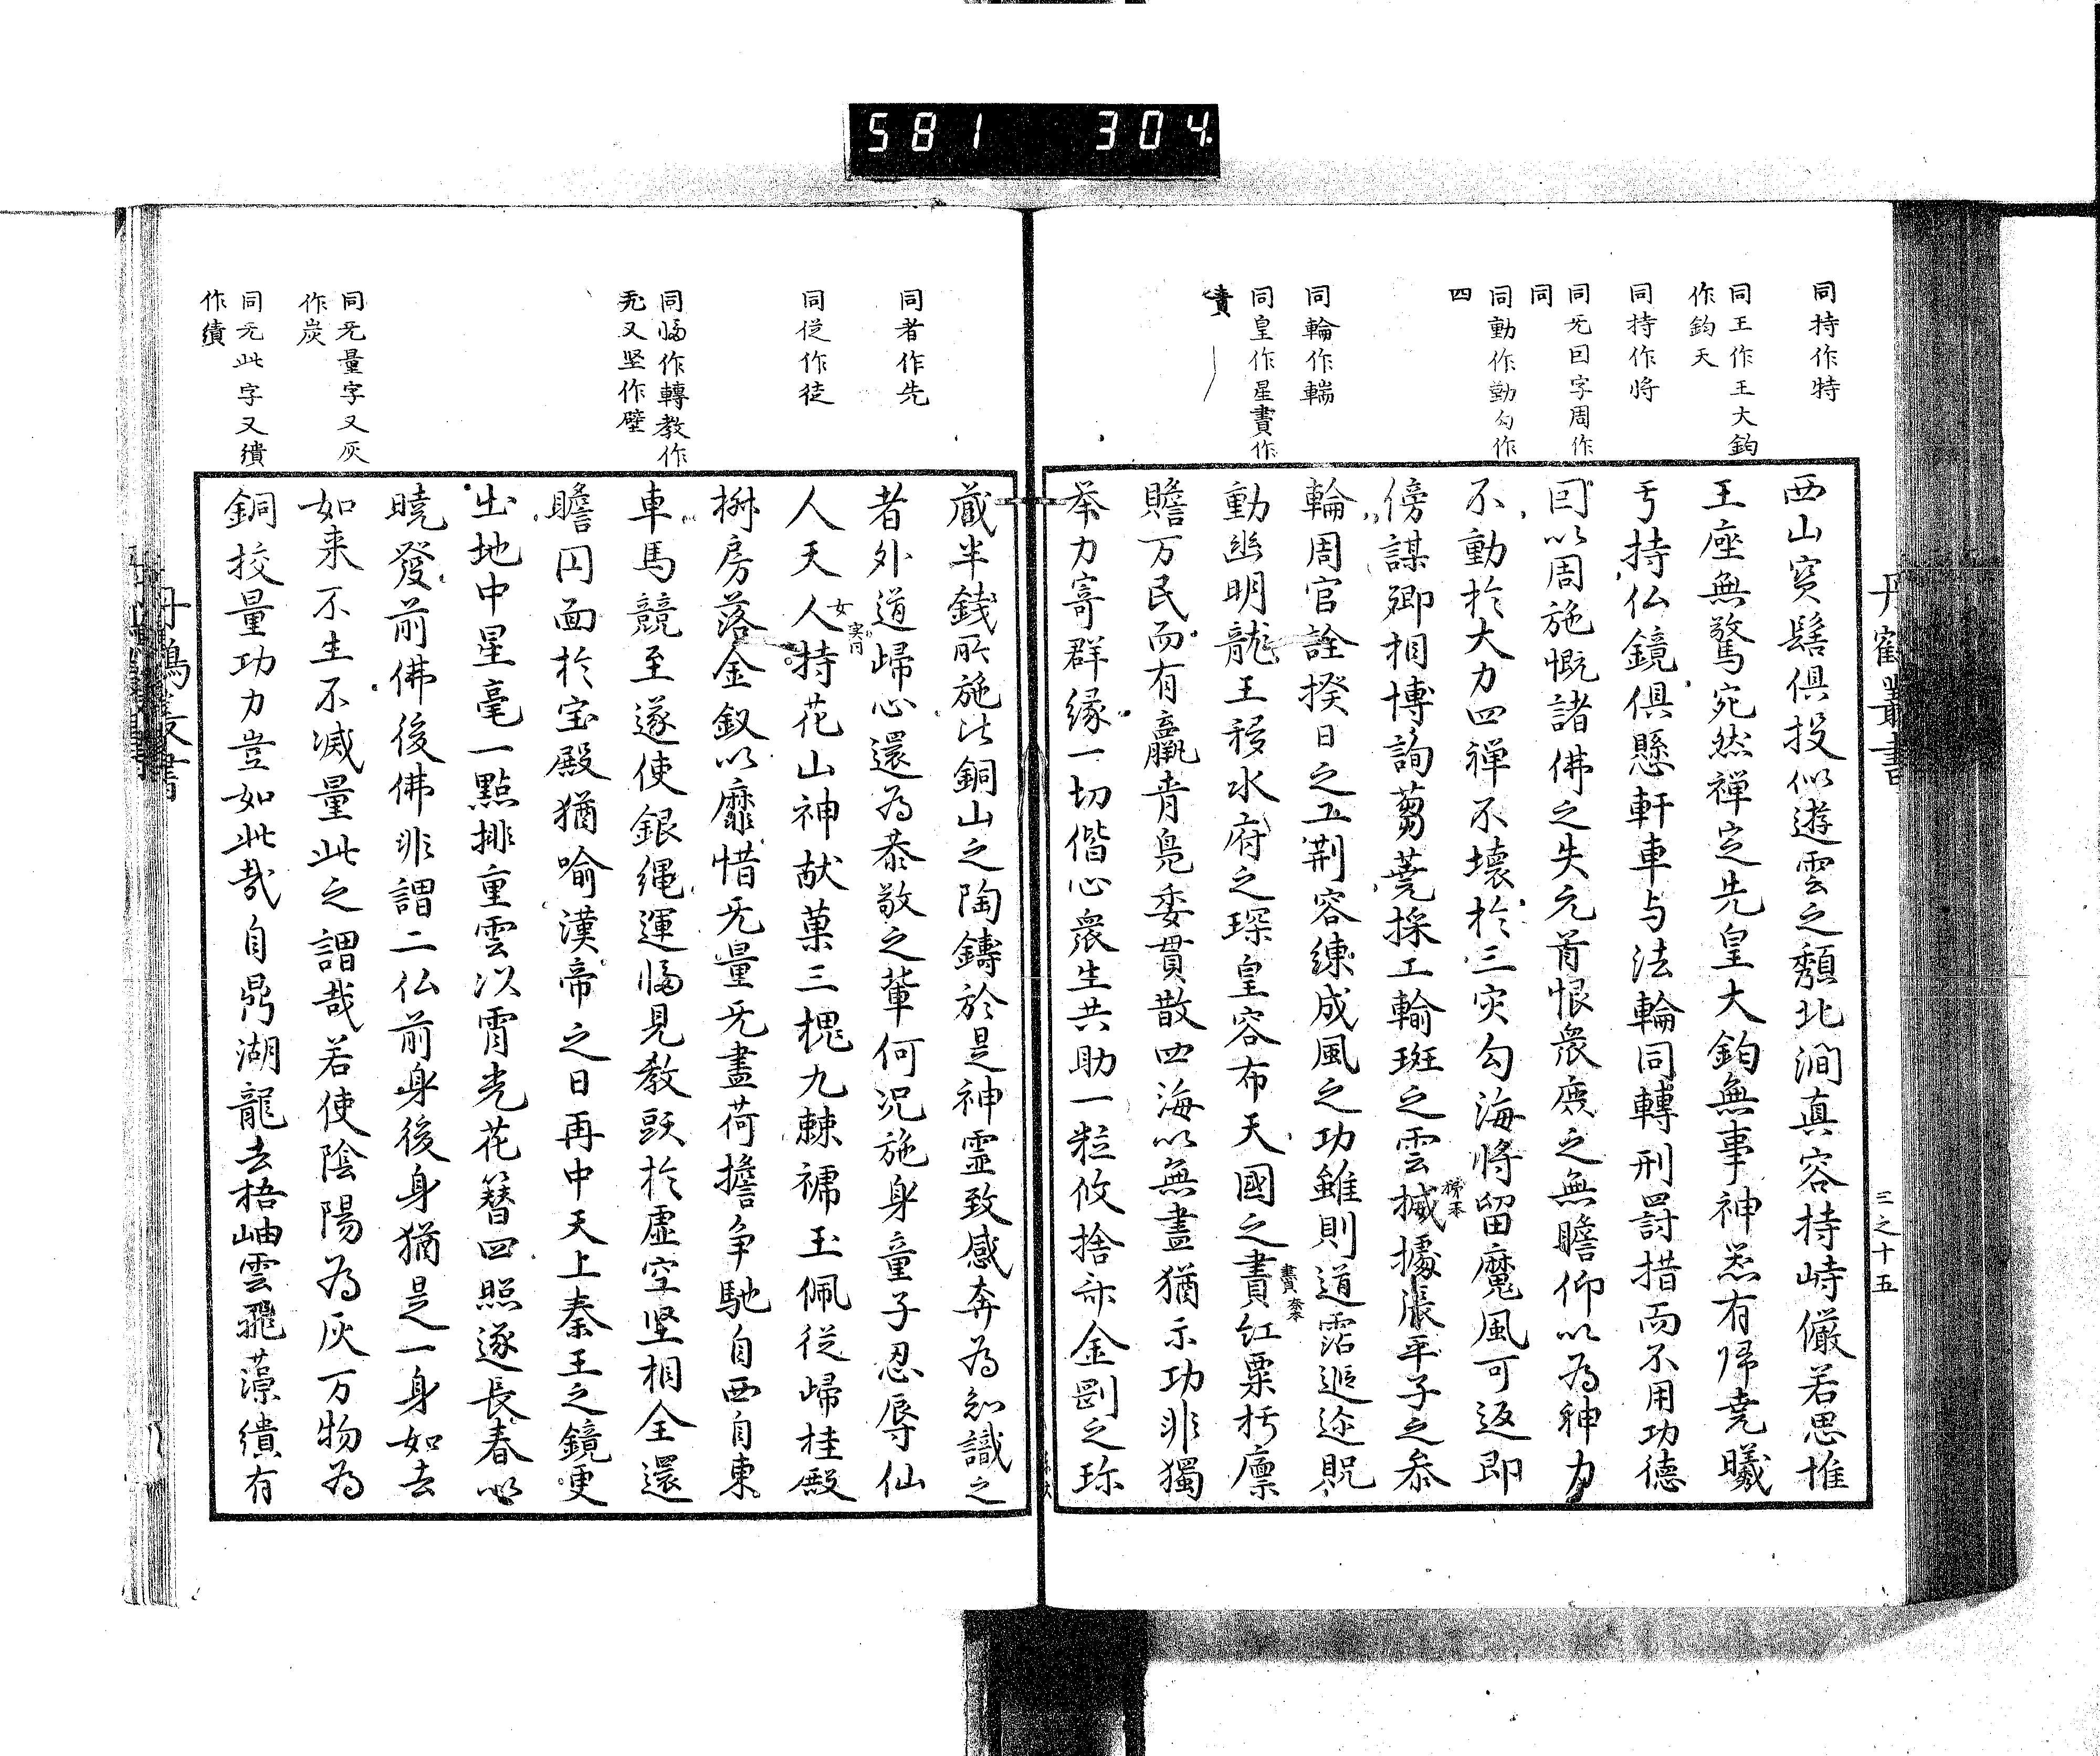 581 304
丹鶴叢書
三之十五
同持作特
同王作王大鈞
作鈞天
同持作将
同无囙字周作
同
同動作勤勾作
四
同輪作輲
同皇作星賮作
責
西山宍髻俱投似遊雲之頽北澗真容持峙儼若思惟
王座無驚宛然禅定先皇大鈞無事神炁有歸堯曦
于持仏鏡俱懸軒車与法輪同轉刑罰措而不用功德
囙以周施慨諸佛之失元首恨衆庶之無瞻仰以為神力
不動於大力四禅不壊於三灾勾海将留魔風可返即
傍謀卿相博詢蒭蕘採工輸班之雲據張平子之叅
輪周官詮揆日之五荆容練成風之功雖則道霑遐迩貺
動幽明龍王移水府之琛皇容布天國之賮紅粟朽廪
贍万民而有羸青凫委貫散四海以無盡猶示功非獨
举力寄群縁一切偕心衆生共助一粒攸捨亦金剛之珎
同者作先
同従作徒
同幅作轉教作
无又坚作壁
同无量字又灰
作炭
同无此字又繢
作績
蔵半銭所施比銅山之陶鑄於是神霊致感奔為知識之
者外道歸心還為恭敬之輩何况施身童子忍辱仙
人天人持花山神献菓三槐九棘裭玉佩従歸桂殿
椒房落金釵以靡惜无量无盡荷擔争馳自西自東
車馬競至遂使銀繩運幅見教跃於虚空坚相全還
瞻円面於宝殿猶喩漢帝之日再中天上秦王之鏡更
出地中星毫一點排重雲以霄光花簪四照逐長春以
曉發前佛後佛非謂二仏前身後身猶是一身如去
如来不生不滅量此之謂哉若使陰陽為灰万物為
銅挍量功力豈如此哉自鼎湖龍去梧岫雲飛藻繢有